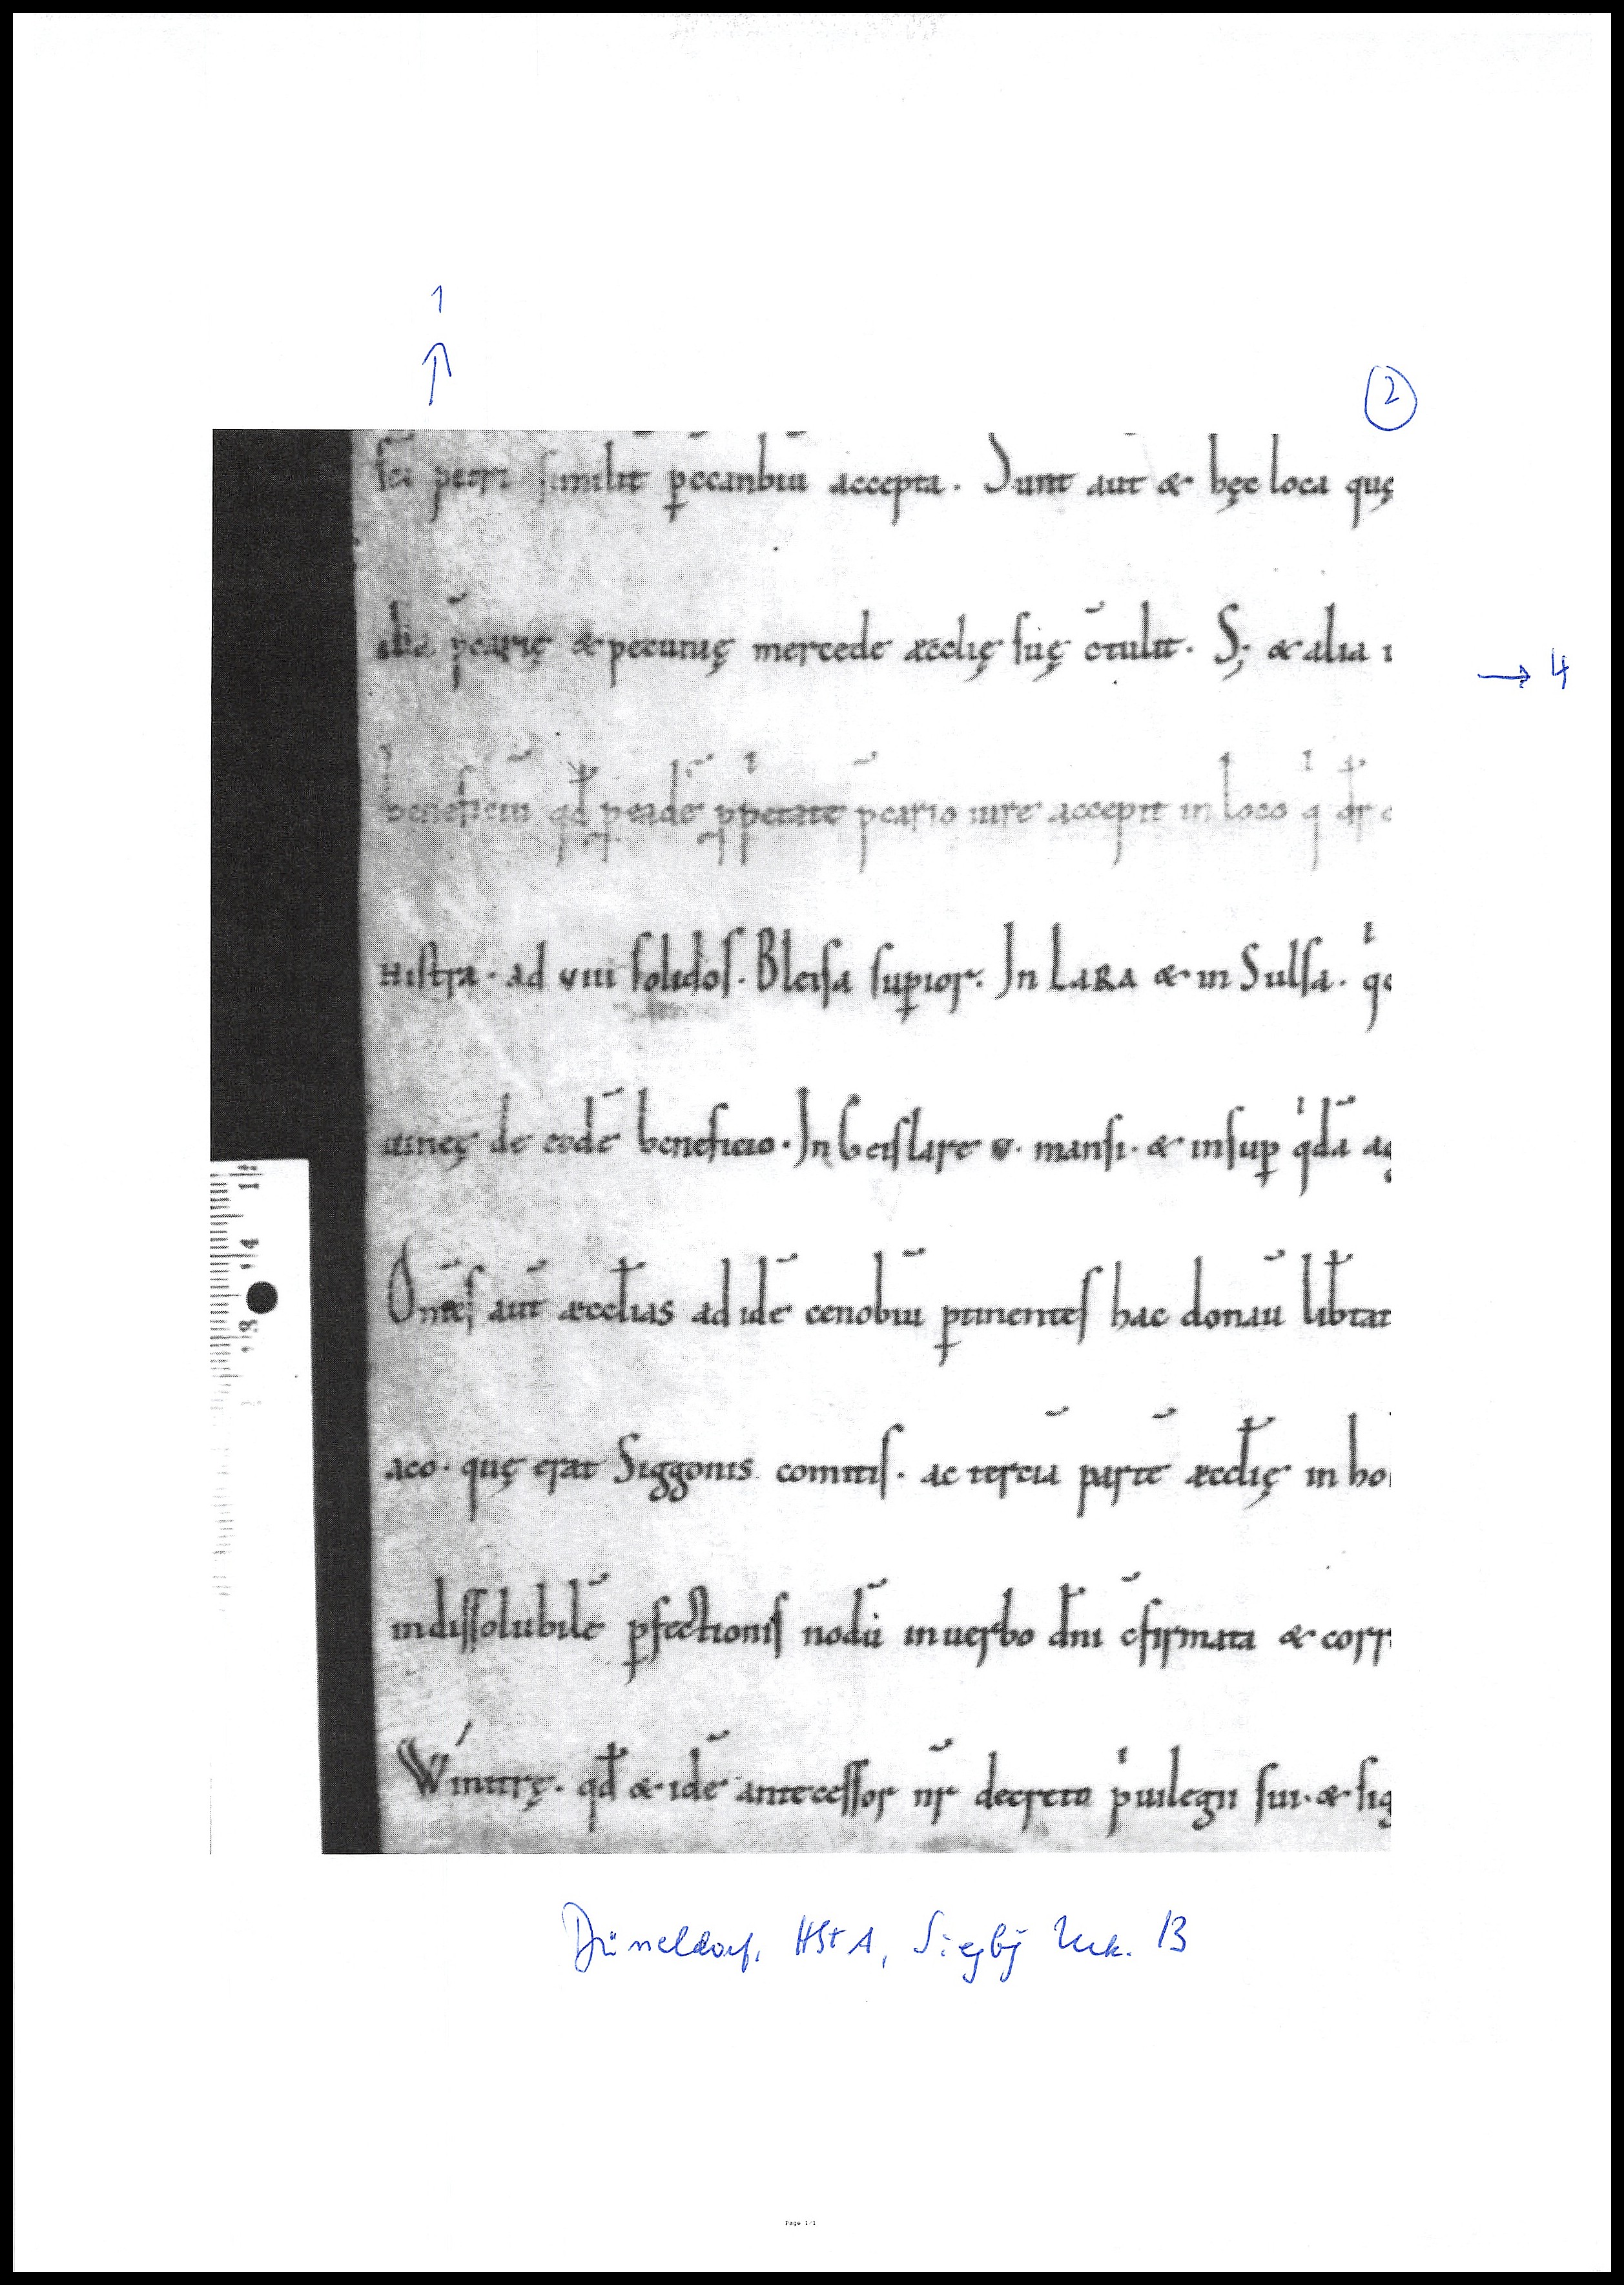 1
↑
②
sc̄i petri similit̄ p̱ ccanbiū accepta. Sunt aut̄ & hęc loca quę
alia p̄carię & pecunię mercede æcclię suę c̄tulit. S; & alia
beneficiū qđ p eadē ꝓpietate p̄cario iure accepit in loco q dr̄
→ 4
nistra. ad viii solidos. Bleisa suꝑior. In LaRa & in Sulsa. q
de eodē beneficio. In Geislare v. mansi. & insuꝑ qdā
Om̄es aut̄ æccłias ad idē cenobiū ꝑtinentes hac donaū lib̄tat
aco. quę erat Siggonis comitis. ac terciā partē æccłię in bo
indissolubilē ꝑfectionis nodū in uerbo dn̄i c̄firmata & corr
Wíntrę. qđ & idē antecessor nr̄ decreto p̍uilegii sui. & sig
Düsseldorf, HStA, Siegbg Urk. 13
Page 1/1